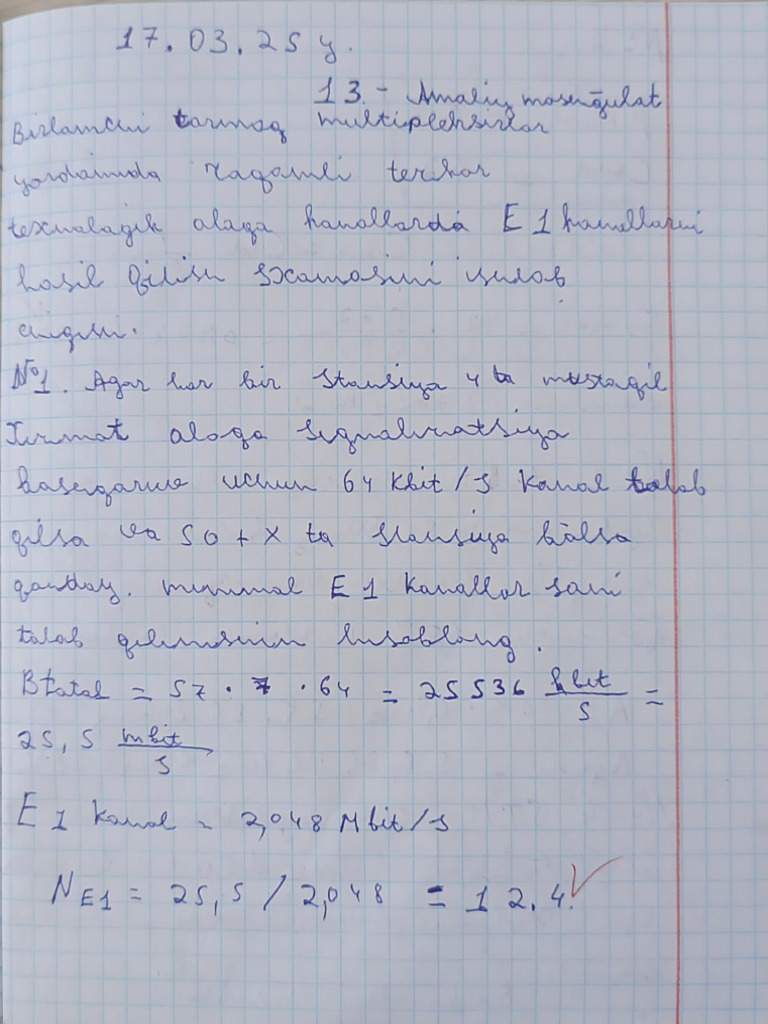 17.03.25 y.
13. - Amaliy mashg'ulot
Birlamchi tarmoq multipleksirlar
yordamida raqamli tezkor
texnalagik alaqa kanallarda E1 kanallarni
hosil qilish sxamasini ishlab
chiqish.
№1. Agar har bir stansiya 4 ta mustaqil
Xizmat aloqa signalizatsiya
boshqaruv uchun 64 Kbit/s kanal talab
qilsa va 50 + X ta stansiya bo'lsa
qanday. minimal E1 kanallar soni
talab qilinishini hisoblang.
Btotal = 57 · 7 · 64 = 25536 kbit/s =
25,5 mbit/s
E1 kanal = 2,048 Mbit/s
N E1 = 25,5 / 2,048 = 12.4.